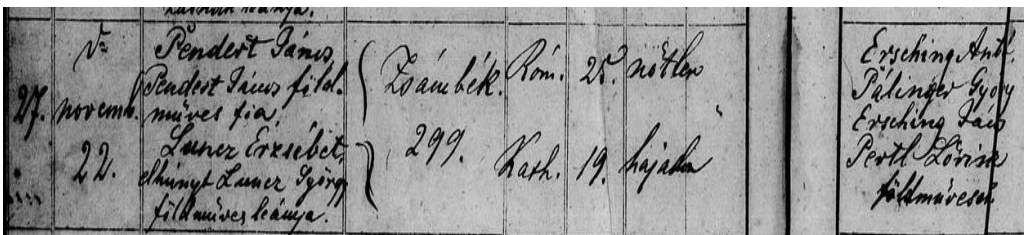 leánya.
27. novemb. 22.
Pendert János,
Pendert János föld-
műves fia,
Luncz Erzsébet,
elhúnyt Luncz György
földműves leánya.
Zsámbék.
299.
Róm.
Kath.
25.
19.
nőtlen
hajadon
Ersching Ant.
Pálinger György
Ersching János
Pertl Lőrincz
földművesek